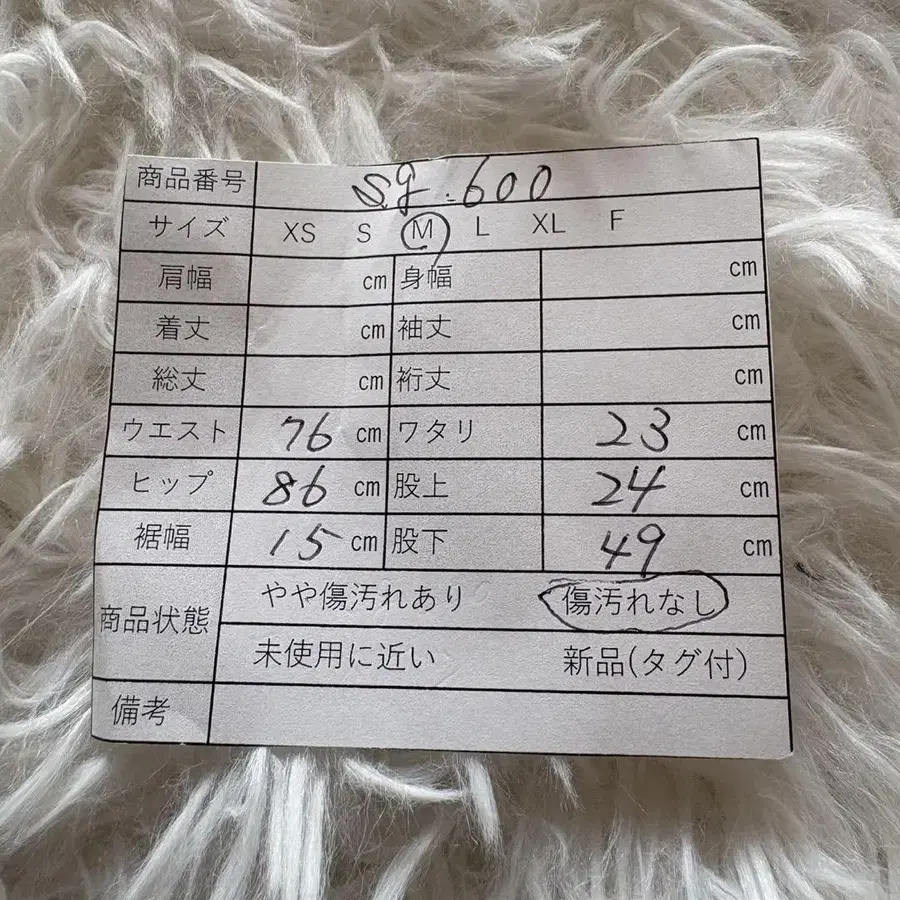 商品番号 sg.600
サイズ XS S M L XL F
肩幅 cm 身幅 cm
着丈 cm 袖丈 cm
総丈 cm 裄丈 cm
ウエスト 76 cm ワタリ 23 cm
ヒップ 86 cm 股上 24 cm
裾幅 15 cm 股下 49 cm
商品状態 やや傷汚れあり 傷汚れなし
未使用に近い 新品(タグ付)
備考